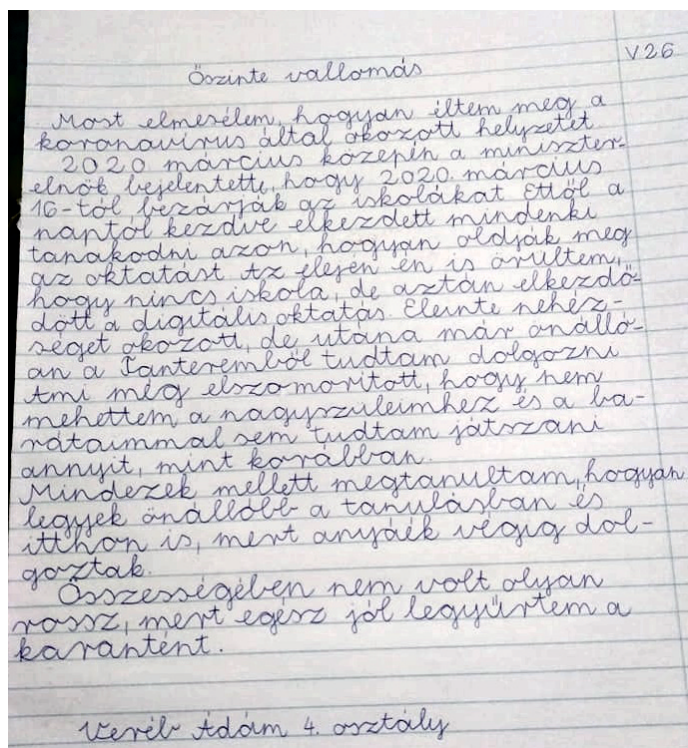 V 26
Őszinte vallomás
Most elmesélem, hogyan éltem meg a
koronavírus által okozott helyzetet
2020 március közepén a miniszter-
elnök bejelentette, hogy 2020. március
16-tól bezárják az iskolákat. Ettől a
naptól kezdve elkezdett mindenki
tanakodni azon, hogyan oldják meg
az oktatást. Az elején én is örültem,
hogy nincs iskola, de aztán elkezdő-
dött a digitális oktatás. Eleinte nehéz-
séget okozott, de utána már önálló-
an a Tanteremből tudtam dolgozni
Ami még elszomorított, hogy nem
mehettem a nagyszüleimhez és a ba-
rátaimmal sem tudtam játszani
annyit, mint korábban.
Mindezek mellett megtanultam, hogyan
legyek önállóbb a tanulásban és
itthon is, mert anyáék végig dol-
goztak.
Összességében nem volt olyan
rossz, mert egész jól legyűrtem a
karantént.
Veréb Ádám 4. osztály